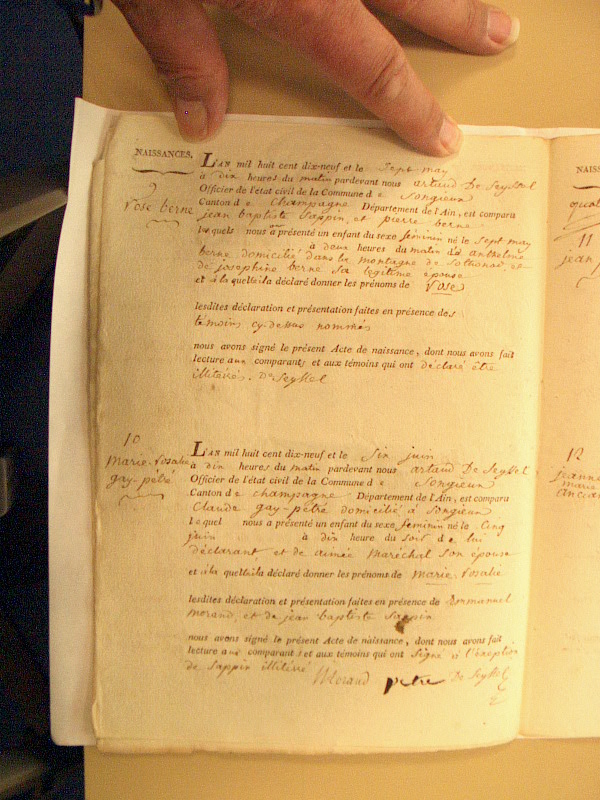 NAISSANCES.
9
Rose berne
L'AN mil huit cent dix-neuf et le Sept may
à dix heures du matin pardevant nous artaud De Seyssel
Officier de l'état civil de la Commune de Songieux
Canton de Champagne Département de l'Ain, est comparu
jean baptiste Sappin, et pierre berne
lesquels nous ont présenté un enfant du sexe feminin né le Sept may
à deux heures du matin d'anthelme
berne domicilié dans la montagne de Sothonod, et
de josephine berne Sa legitime épouse
et à la quelle ila déclaré donner les prénoms de Rose
lesdites déclaration et présentation faites en présence des
témoins cy-dessus nommés
nous avons signé le présent Acte de naissance, dont nous avons fait
lecture aux comparants et aux témoins qui ont déclaré être
illitérés. DeSeyssel
10
Marie-rosalie
gay-pêtre
L'AN mil huit cent dix-neuf et le Six juin
à dix heures du matin pardevant nous artaud De Seyssel
Officier de l'état civil de la Commune de Songieux
Canton de champagne Département de l'Ain, est comparu
Claude gay-pêtre domicilié à Songieux
lequel nous a présenté un enfant du sexe feminin né le Cinq
juin à dix heure du Soir de lui
déclarant et de aimée Maréchal Son épouse
et à la quelle ila déclaré donner les prénoms de Marie-rosalie
lesdites déclaration et présentation faites en présence de Emmanuel
Morand, et de jean baptiste Sappin
nous avons signé le présent Acte de naissance, dont nous avons fait
lecture au comparant et aux témoins qui ont Signé à l'exception
de Sappin illitéré Morand petre De Seyssel
NAISS
11
jean
12
jeanne
marie